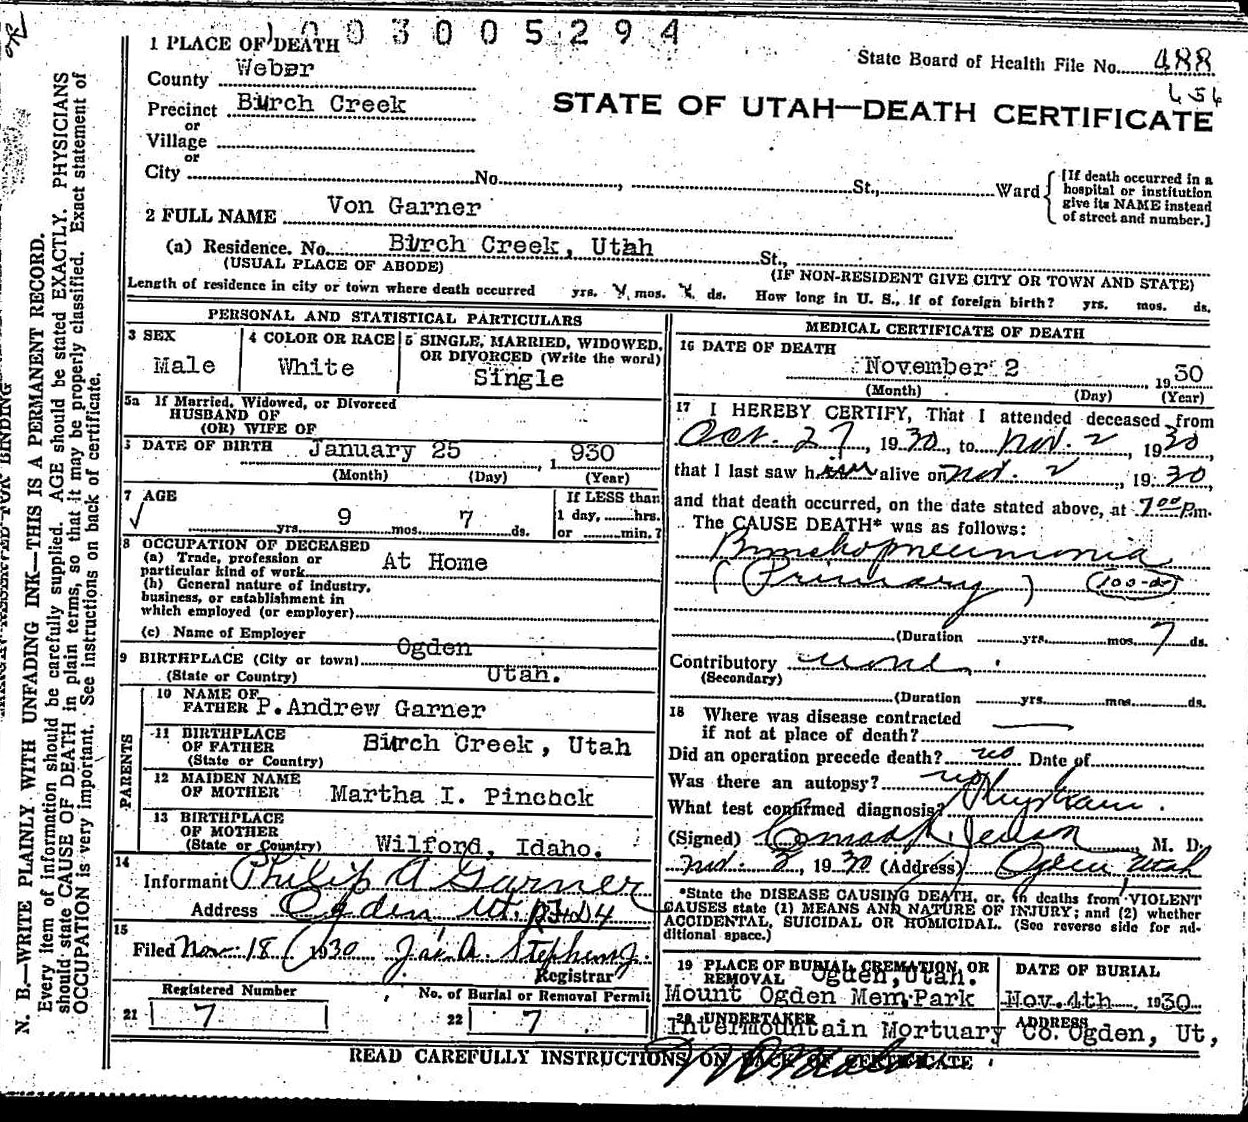 1003005294
State Board of Health File No. 488
STATE OF UTAH—DEATH CERTIFICATE
1 PLACE OF DEATH
County Weber
Precinct Birch Creek
or
Village
or
City No. , St., Ward
[If death occurred in a
hospital or institution
give its NAME instead
of street and number.]
2 FULL NAME Von Garner
(a) Residence. No. Birch Creek, Utah St.,
(USUAL PLACE OF ABODE) (IF NON-RESIDENT GIVE CITY OR TOWN AND STATE)
Length of residence in city or town where death occurred yrs. mos. ds. How long in U. S., if of foreign birth? yrs. mos. ds.
PERSONAL AND STATISTICAL PARTICULARS
3 SEX Male
4 COLOR OR RACE White
5 SINGLE, MARRIED, WIDOWED,
OR DIVORCED (Write the word)
Single
5a If Married, Widowed, or Divorced
HUSBAND OF
(OR) WIFE OF
DATE OF BIRTH January 25, 1930
(Month) (Day) (Year)
7 AGE
yrs. 9 mos. 7 ds.
If LESS than
1 day, hrs.
or min.?
8 OCCUPATION OF DECEASED
(a) Trade, profession or
particular kind of work At Home
(b) General nature of industry,
business, or establishment in
which employed (or employer)
(c) Name of Employer
9 BIRTHPLACE (City or town) Ogden
(State or Country) Utah.
PARENTS
10 NAME OF
FATHER P. Andrew Garner
11 BIRTHPLACE
OF FATHER Birch Creek, Utah
(State or Country)
12 MAIDEN NAME
OF MOTHER Martha I. Pincock
13 BIRTHPLACE
OF MOTHER
(State or Country) Wilford, Idaho.
14
Informant Philip A Garner
Address Ogden Ut. RFD4
15
Filed Nov 18 1930 Jas. A. Stephens Jr.
Registrar
Registered Number
21 7
No. of Burial or Removal Permit
22 7
MEDICAL CERTIFICATE OF DEATH
16 DATE OF DEATH
November 2, 1930
(Month) (Day) (Year)
17 I HEREBY CERTIFY, That I attended deceased from
Oct. 27, 1930, to Nov. 2, 1930
that I last saw him alive on Nov. 2, 1930,
and that death occurred, on the date stated above, at 7 00 P.m.
The CAUSE DEATH* was as follows:
Bronchopneumonia
(Primary)
(Duration yrs. mos. 7 ds.
Contributory none
(Secondary)
(Duration yrs. mos. ds.
18 Where was disease contracted
if not at place of death?
Did an operation precede death? no Date of
Was there an autopsy? no
What test confirmed diagnosis?
(Signed) M. D.
1930 (Address) Ogden, Utah
*State the DISEASE CAUSING DEATH, or, in deaths from VIOLENT
CAUSES state (1) MEANS AND NATURE OF INJURY; and (2) whether
ACCIDENTAL, SUICIDAL OR HOMICIDAL. (See reverse side for ad-
ditional space.)
19 PLACE OF BURIAL, CREMATION, OR
REMOVAL Ogden, Utah.
Mount Ogden Mem. Park
DATE OF BURIAL
Nov. 4th 1930
20 UNDERTAKER
Intermountain Mortuary Co.
ADDRESS
Ogden, Ut,
READ CAREFULLY INSTRUCTIONS ON BACK OF CERTIFICATE
N. B.—WRITE PLAINLY WITH UNFADING INK—THIS IS A PERMANENT RECORD.
Every item of information should be carefully supplied. AGE should be stated EXACTLY. PHYSICIANS
should state CAUSE OF DEATH in plain terms, so that it may be properly classified. Exact statement of
OCCUPATION is very important. See instructions on back of certificate.